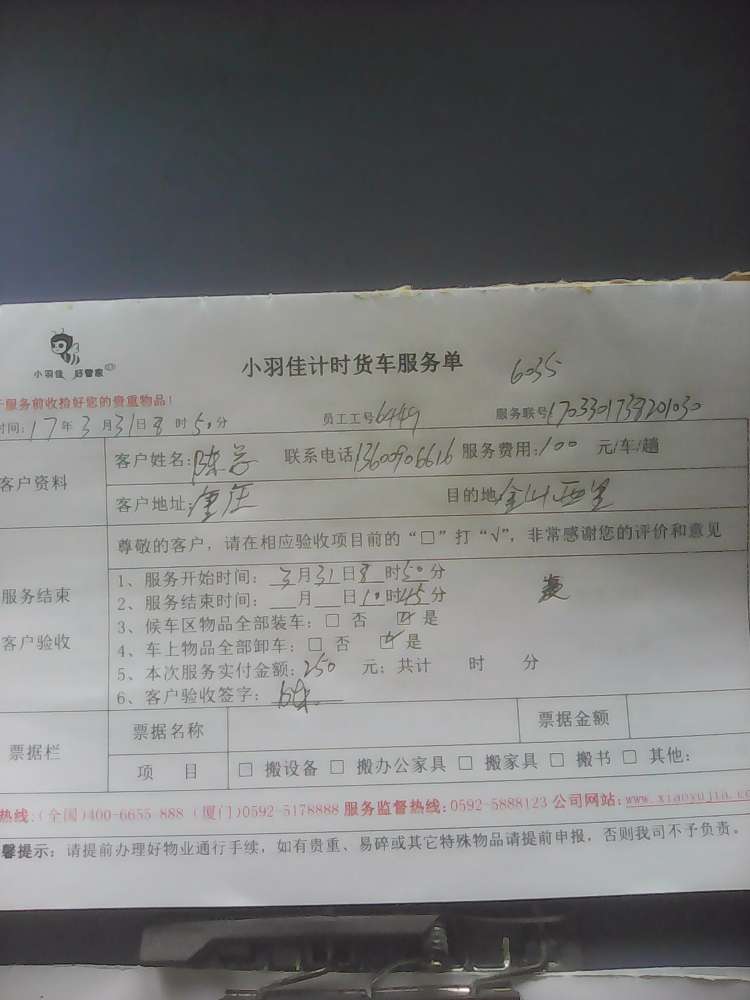 小羽佳 好管家
小羽佳计时货车服务单
6035
服务前收拾好您的贵重物品!
时间:17年3月31日8时50分 员工工号6449 服务联号1703301738201030
客户资料
客户姓名:陈 联系电话13600906616 服务费用:100 元/车/趟
客户地址: 目的地:金山西里
尊敬的客户,请在相应验收项目前的“□”打“√”,非常感谢您的评价和意见
服务结束
客户验收
1、服务开始时间:3月31日8时50分
2、服务结束时间:___月___日10时45分
3、候车区物品全部装车:□ 否 ☑ 是
4、车上物品全部卸车:□ 否 ☑ 是
5、本次服务实付金额:250 元;共计 时 分
6、客户验收签字:
票据栏
票据名称 票据金额
项 目 □ 搬设备 □ 搬办公家具 □ 搬家具 □ 搬书 □ 其他:
热线:(全国)400-6655 888 (厦门)0592-5178888 服务监督热线:0592-5888123 公司网站:www.xiaoyujia.co
馨提示:请提前办理好物业通行手续,如有贵重、易碎或其它特殊物品请提前申报,否则我司不予负责。